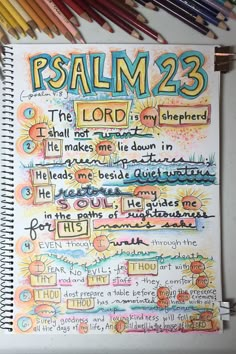 PSALM 23
(~psalm 23)
1 The LORD is my shepherd
I shall not want
2 He makes me lie down in
green pastures;
He leads me beside Quiet waters
3 He restores my
SOUL; He guides me
in the paths of righteousness
for HIS name's sake
4 EVEN though I walk through the
valley of the shadow of death
I FEAR NO EVIL; for THOU art with me
THY rod and THY staff, they comfort me
5 THOU dost prepare a table before me in the presence
enemies THOU has anointed
6 Surely goodness and lovingkindness will follow me
all the days of my life, And I shall dwell in the house of the LORD